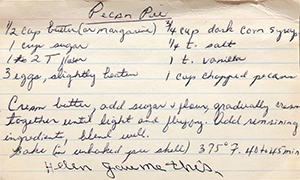 Pecan Pie
1/2 cup butter (or margarine)
1 cup sugar
1 to 2 T flour
3 eggs, slightly beaten
3/4 cup dark corn syrup
1/4 t. salt
1 t. vanilla
1 cup chopped pecans
Cream butter, add sugar & flour, gradually cream
together until light and fluffy. Add remaining
ingredients, blend well.
Bake (in unbaked pie shell) 375° F. 40 to 45 min
Helen gave me this.